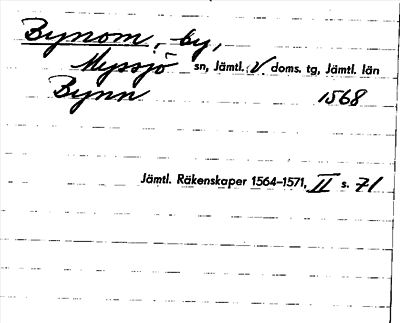 Bynom, by,
Myssjö sn, Jämtl. v doms. tg, Jämtl. län
Bynn 1568
Jämtl. Räkenskaper 1564–1571, II s. 71